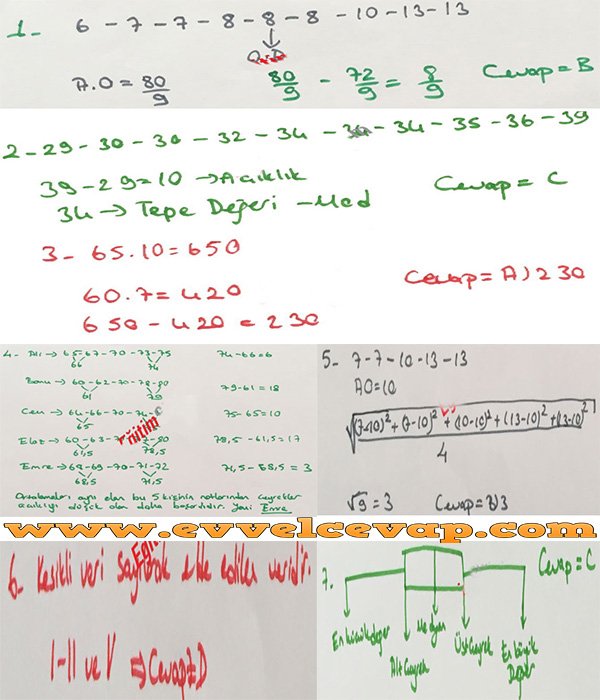 1- 6 - 7 - 7 - 8 - 8 - 8 - 10 - 13 - 13
A.O = 80/9
80/9 - 72/9 = 8/9
Cevap = B
2 - 29 - 30 - 30 - 32 - 34 - 34 - 35 - 36 - 39
39 - 29 = 10 → Açıklık
34 → Tepe Değeri - Mod
Cevap = C
3 - 65.10 = 650
60.7 = 420
650 - 420 = 230
Cevap = A) 230
4 - Ali → 65-67-70-73-75
66 74
74-66=8
60-62-70-78-80
61 79
79-61=18
Cem → 64-66-70-74-
65
75-65=10
60-63-7
-80
61,5 78,5
78,5-61,5=17
Emre → 68-69-70-71-72
68,5 71,5
71,5-68,5=3
Ortalamaları aynı olan bu 5 kişinin notlarından çeyrekler
açıklığı düşük olan daha başarılıdır. Yani Emre
5- 7-7-10-13-13
AO=10
√(7-10)²+(7-10)²+(10-10)²+(13-10)²+(13-10)²
4
√9 = 3
Cevap = B) 3
www.evvelcevap.com
6- Kesikli veri sayılarak elde edilen veridir.
I-II ve V ⇒ Cevap = D
7.
Cevap = C
En küçük değer
Alt Çeyrek
Medyan
Üst Çeyrek
En büyük
Değer